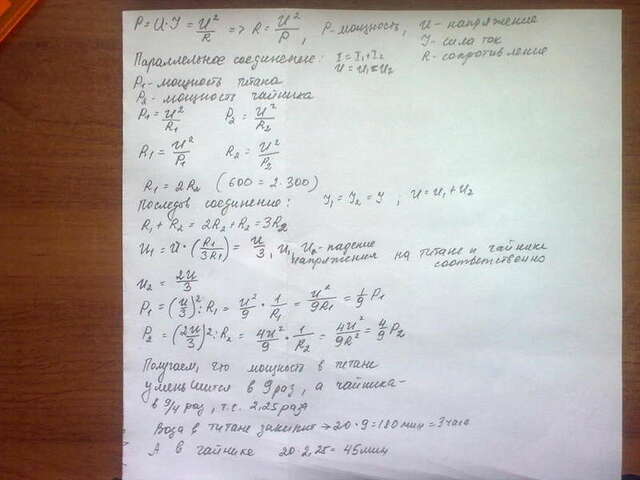 P = U·I = U²/R => R = U²/P, P-мощность, U-напряжение
I-сила ток
Параллельное соединение: I = I₁+I₂ R-сопротивление
U = U₁=U₂
P₁-мощность титана
P₂-мощность чайника
P₁ = U²/R₁ P₂ = U²/R₂
R₁ = U²/P₁ R₂ = U²/P₂
R₁ = 2R₂ (600 = 2·300)
Последов соединение: I₁=I₂=I ; U=U₁+U₂
R₁+R₂ = 2R₂+R₂ = 3R₂
U₁ = U·(R₁/3R₁) = U/3, U₁, U₂-падение
напряжения на титане и чайнике
соответственно
U₂ = 2U/3
P₁ = (U/3)² : R₁ = U²/9 · 1/R₁ = U²/9R₁ = 1/9 P₁
P₂ = (2U/3)² : R₂ = 4U²/9 · 1/R₂ = 4U²/9R² = 4/9 P₂
Получаем, что мощность в титане
уменьшится в 9 раз, а чайника-
в 9/4 раз, т.е. 2,25 раза
Вода в титане закипит → 20·9=180 мин = 3 часа
А в чайнике 20·2,25=45 мин